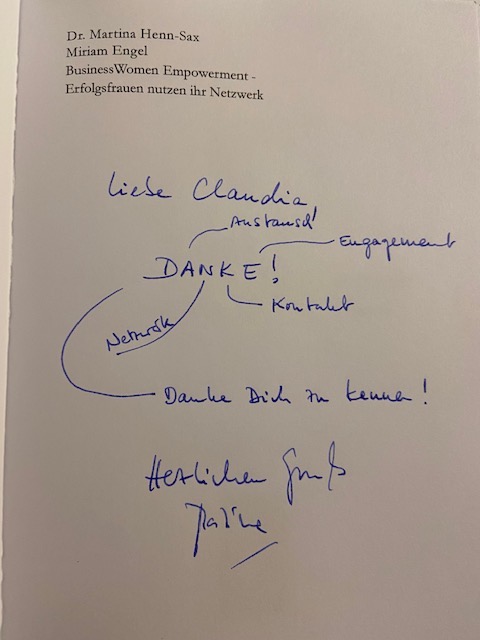 Dr. Martina Henn-Sax
Miriam Engel
BusinessWomen Empowerment -
Erfolgsfrauen nutzen ihr Netzwerk
Liebe Claudia,
Austausch!
Engagement
DANKE!
Kontakt
Netzwerk
Danke Dich zu kennen!
Herzlichen Gruß